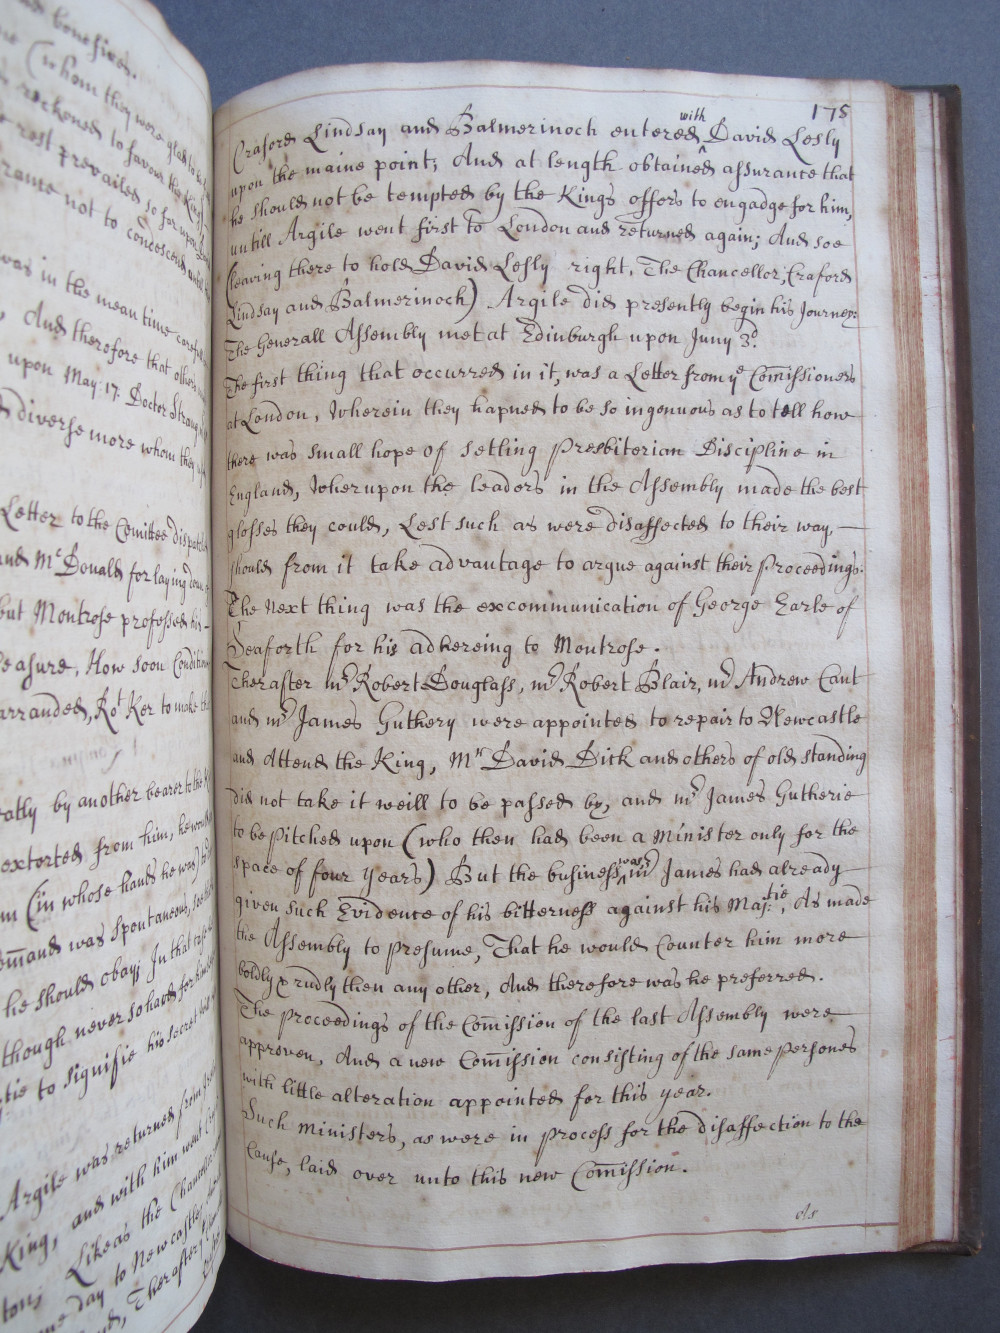 and benefices.
(whom they were glad to
reckoned to favour the King
rest prevailed so far upon
not to condescend untill
was in the mean time carefull
And therefore that others
upon May 17. Doctor Strang
diverse more whom they
Letter to the Com̄ittee dispatch
and Mc Donald for laying down
but Montrose professed his —
pleasure, How soon Condition
Rot Ker to make the
by another bearer to the
extorted from him, he would
(in whose hands he was)
com̄and was spontaneous,
he should obay; In that case
though never so hard for him
to signifie his secret
Argile was returned from
King, and with him went
Likeas the Chancellor
day to Newcastle,
Therafter
175
Craford Lindsay and Balmerinoch entered with^ David Lesly
upon the maine point; And at length obtained assurance that
he should not be tempted by the Kings offers to engadge for him,
untill Argile went first to London and returned again; And soe
(leaving there to hold David Lesly right, The Chancellor, Craford
Lindsay and Balmerinoch) Argile did presently begin his Journey:
The Generall Assembly met at Edinburgh upon Juny 3d.
The first thing that occurred in it, was a Letter from ye Com̄issioners
at London, Wherein they hapned to be so ingenuous as to tell how
there was small hope of setling Presbiterian Discipline in
England, Wherupon the leaders in the Assembly made the best
glosses they could, Lest such as were disaffected to their way, —
should from it take advantage to argue against their Proceedings.
The next thing was the excommunication of George Earle of
Seaforth for his adhereing to Montrose.
Therafter mr Robert Douglass, mr Robert Blair, mr Andrew Cant
and mr James Guthery were appointed to repair to Newcastle
and Attend the King, Mr David Dick and others of old standing
did not take it weill to be passed by, and mr James Gutherie
to be pitched upon (who then had been a Minister only for the
space of four years) But the business was^ mr James had already
given such Evidence of his bitterness against his Maj:tie, As made
the Assembly to presume, That he would Counter him more
boldly & rudly then any other, And therefore was he preferred.
The Proceedings of the Com̄ission of the last Assembly were
approven, And a new Com̄ission consisting of the same persones
with little alteration appointed for this year.
Such Ministers, as were in process for the disaffection to the
Cause, laid over unto this new Com̄ission.
As